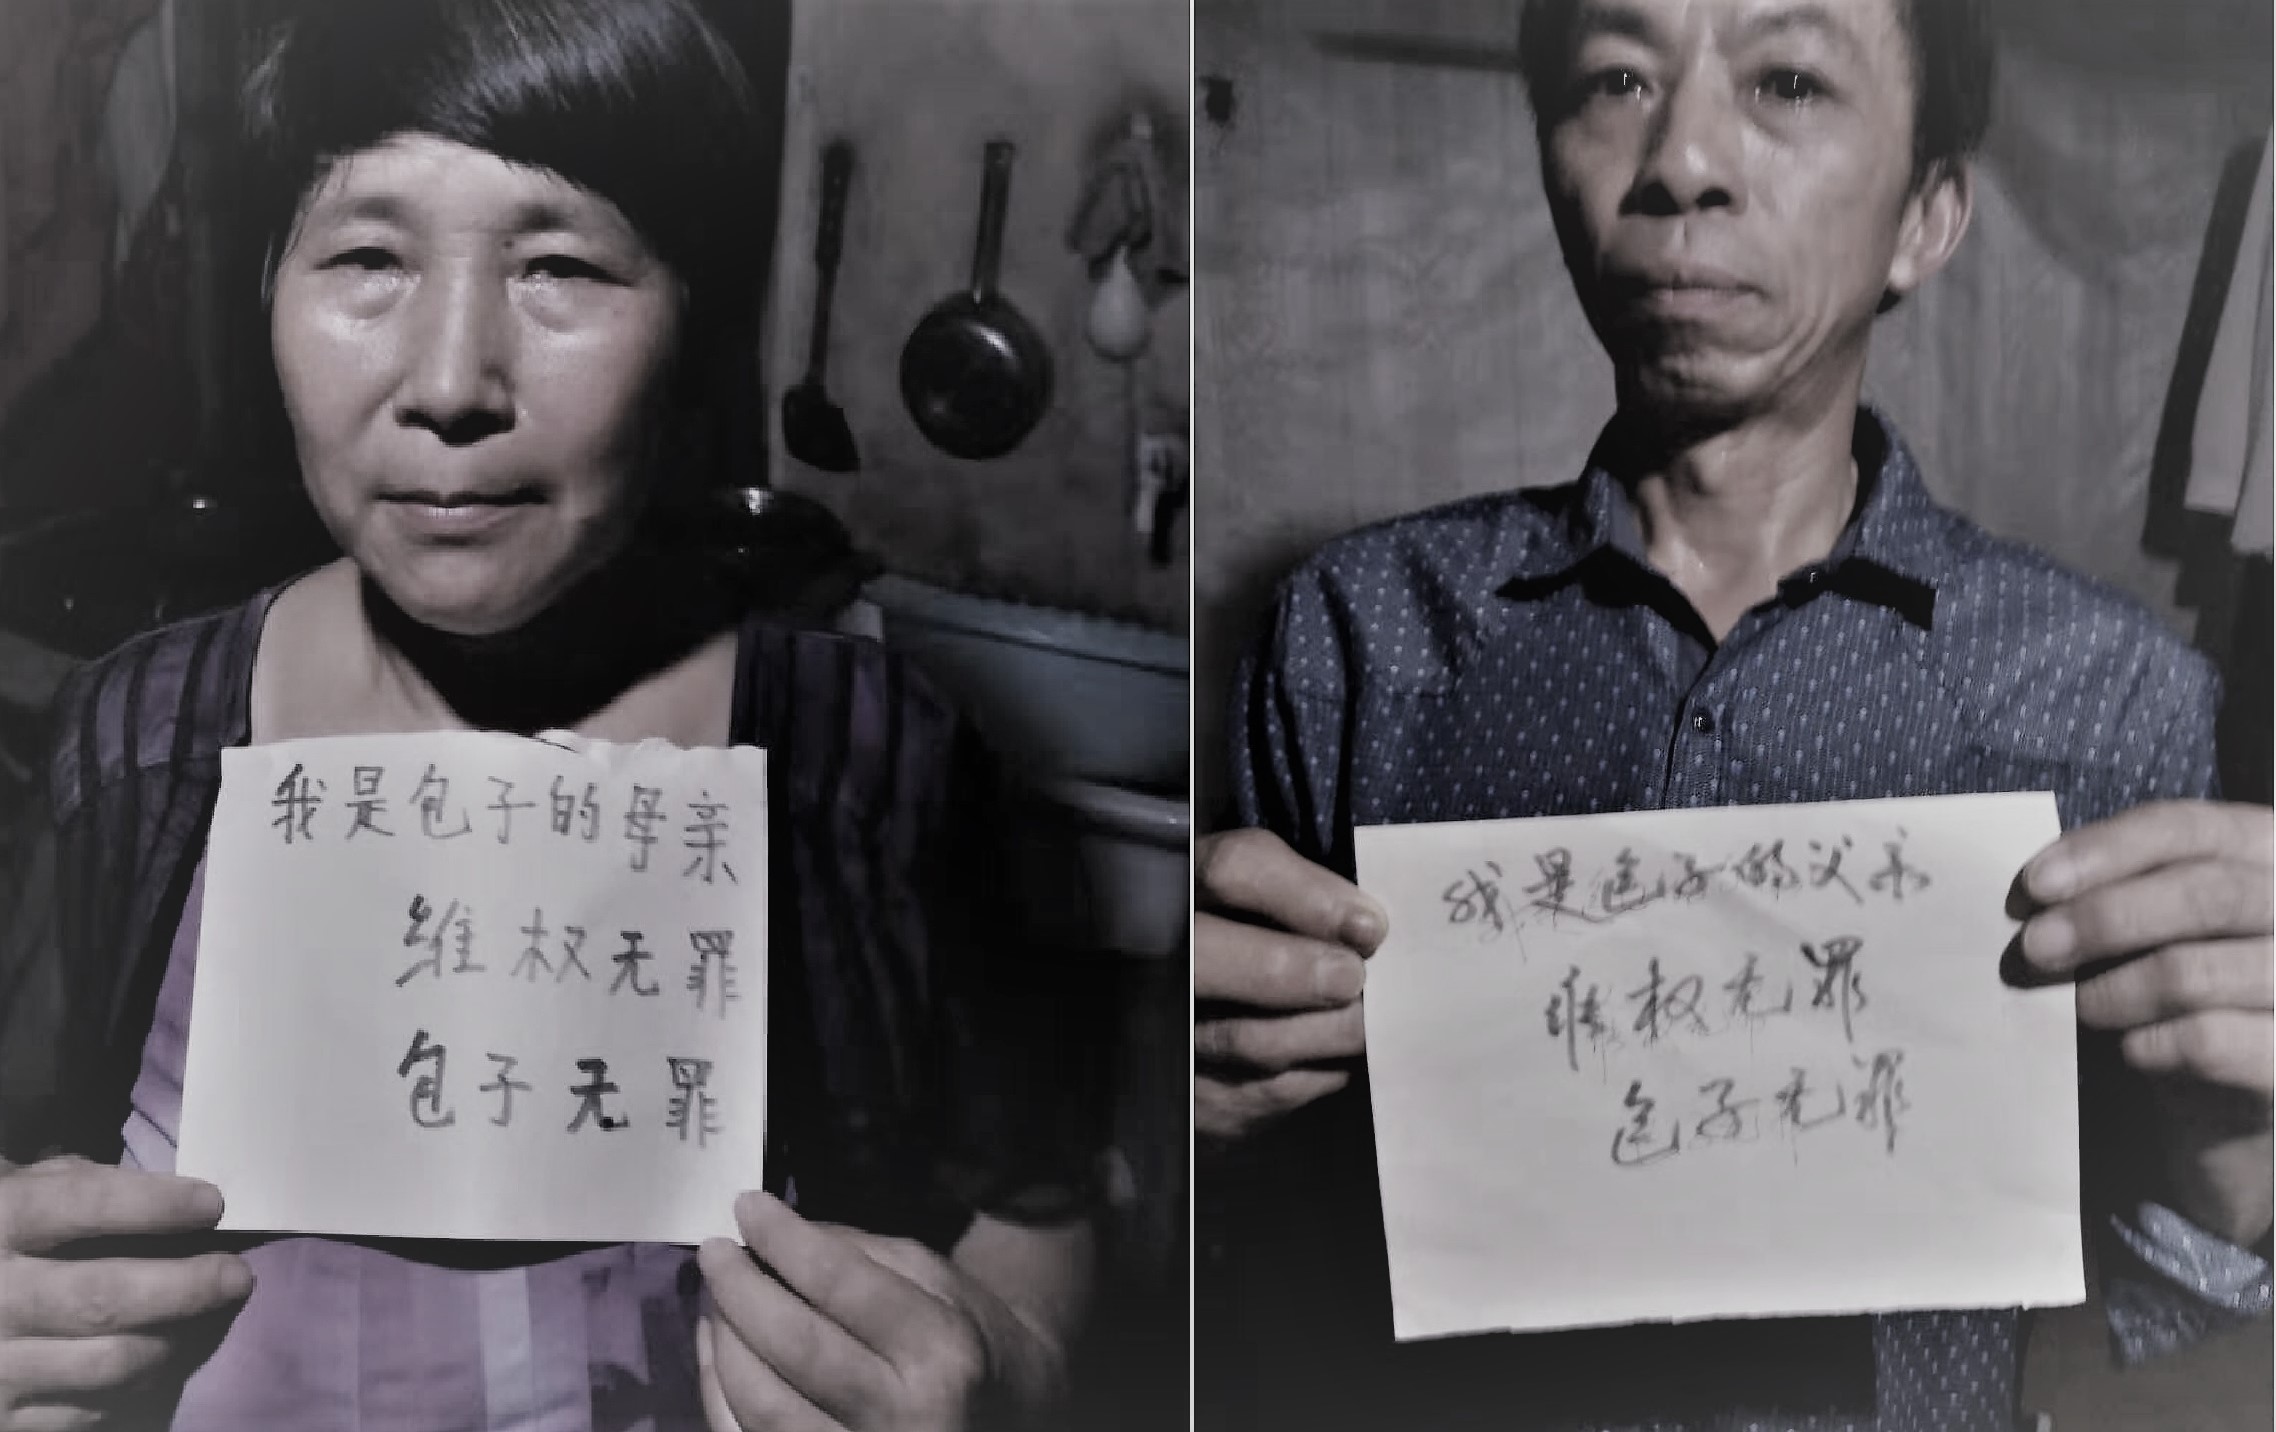 我是包子的母亲
维权无罪
包子无罪
我是包子的父亲
维权无罪
包子无罪